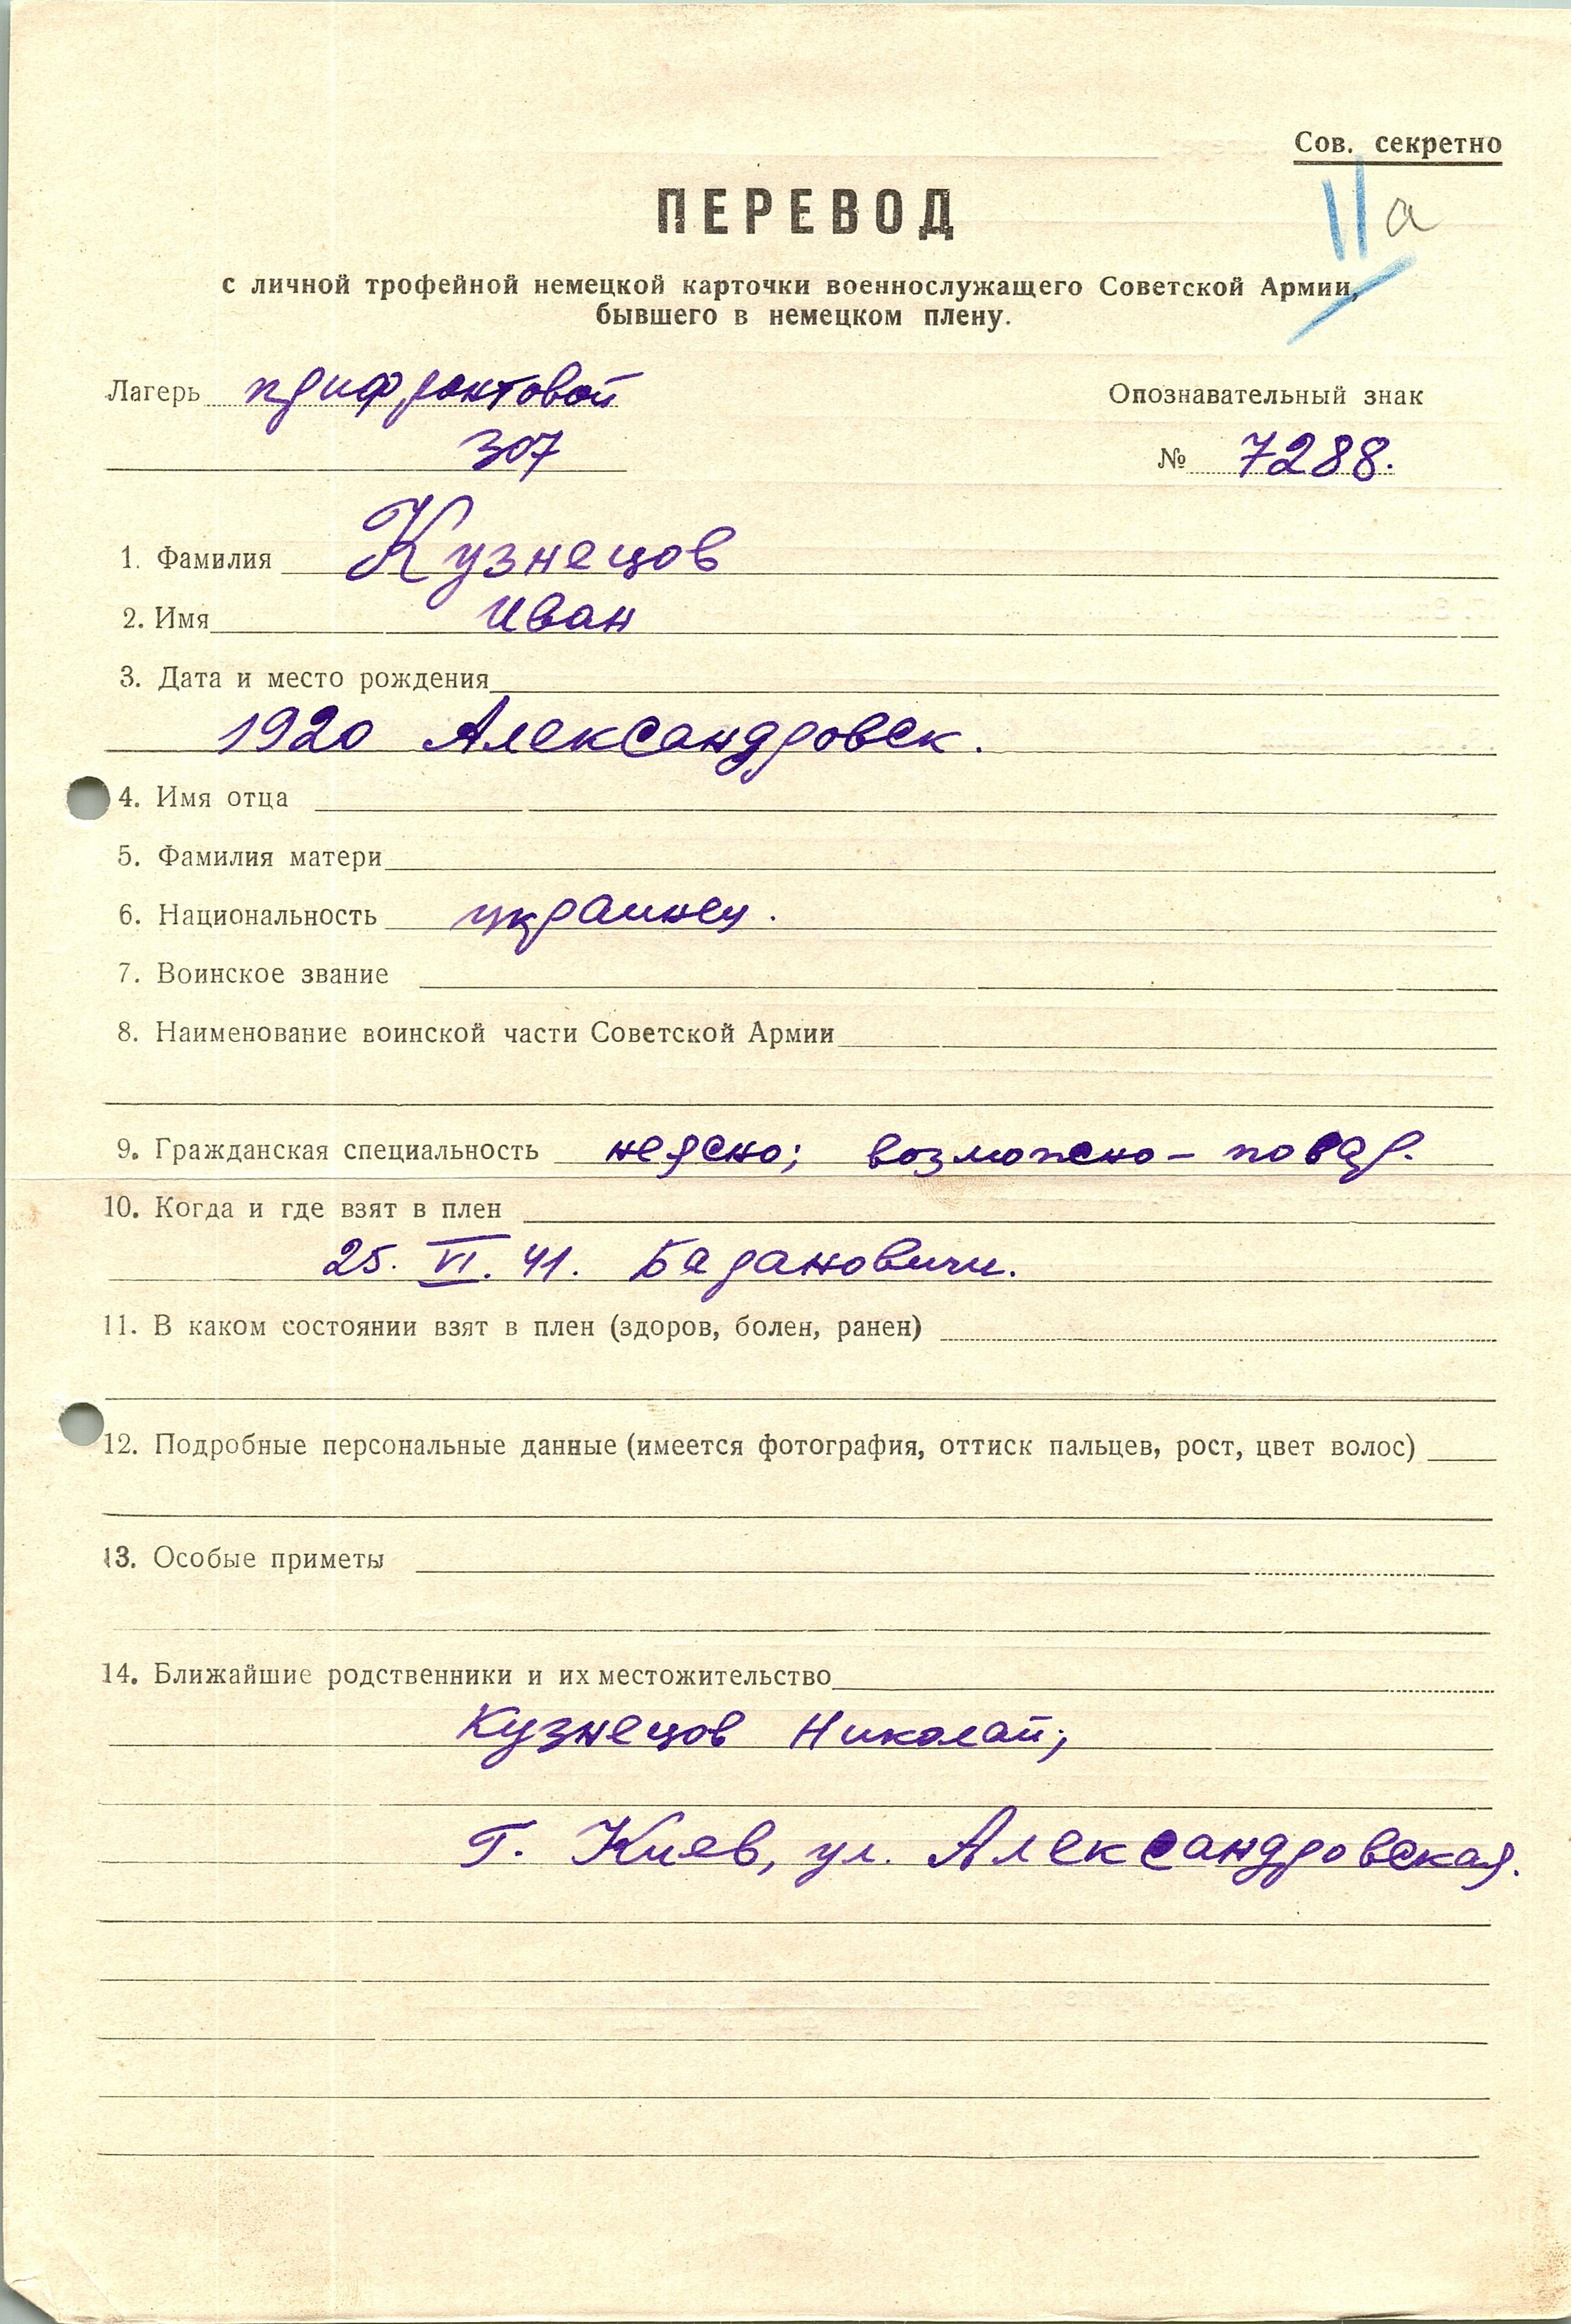 Сов. секретно
II а
ПЕРЕВОД
с личной трофейной немецкой карточки военнослужащего Советской Армии,
бывшего в немецком плену.
Лагерь прифронтовой Опознавательный знак
307 № 7288.
1. Фамилия Кузнецов
2. Имя Иван
3. Дата и место рождения
1920 Александровск.
4. Имя отца
5. Фамилия матери
6. Национальность украинец.
7. Воинское звание
8. Наименование воинской части Советской Армии
9. Гражданская специальность неясно; возможно - повар.
10. Когда и где взят в плен
25. VI. 41. Барановичи.
11. В каком состоянии взят в плен (здоров, болен, ранен)
12. Подробные персональные данные (имеется фотография, оттиск пальцев, рост, цвет волос)
13. Особые приметы
14. Ближайшие родственники и их местожительство
Кузнецов Николай;
г. Киев, ул. Александровская.